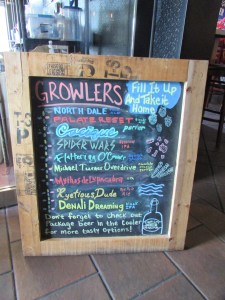 GROWLERS
Fill It Up
And Take it
Home!
NORTH DALE
PALATE RESET
SPIDER WARS
Michael Turner Overdrive
Ryeteous Dude
Denali Dreaming
Don't forget to check out
Package beer in the Cooler
For more tasty Options!